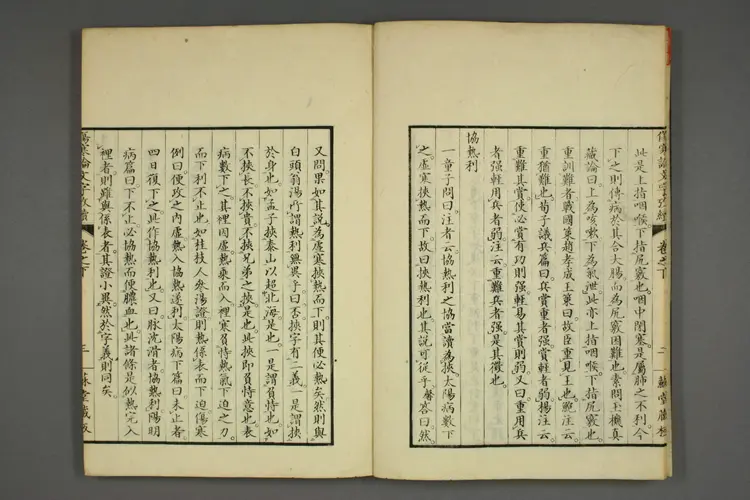 此是上指咽喉下指尻竅也咽中閉塞是屬肺之不利今
下之則傳病於其合大腸而為尻竅困難也素問玉機真
藏論曰上為咳嗽下為氣泄此亦上指咽喉下指尻竅也
重訓難者戰國策趙孝成王策曰故臣重見王也鮑注云
重猶難也荀子議兵篇曰兵賞重者强賞輕者弱楊注云
重難其賞使必賞有功則强輕易其賞則弱又曰重用兵
者强輕用兵者弱注云重難兵者强是其徵也
協熱利
一童子問曰注者云協熱利之協當讀為挾太陽病數下
之虛寒挾熱而下故曰挾熱利也其說可從乎謩答曰然
又問果如其說為虛寒挾熱而下則其便必熱矣然則與
白頭翁湯所謂熱利無異乎曰否挾字有二義一是謂挾
於身也如孟子挾泰山以超北海是也一是謂負恃也如
不挾長不挾貴不挾兄弟之挾是也此挾即負恃意也表
病數下之其裡因虛熱乘而入裡寒負恃熱氣下迫之力
而下利不止也如桂枝人參湯證則熱係表而下迫傷寒
例曰便攻之內虛熱入協熱遂利太陽病下篇曰未止者
四日復下之此作協熱利也又曰脉沈滑者協熱利陽明
病篇曰下不止必協熱而便膿血也此諸條是似熱完入
裡者則雖與係表者其證小異然於字義則同矣
傷寒論文字攷續 卷之下 三
卷之下 二